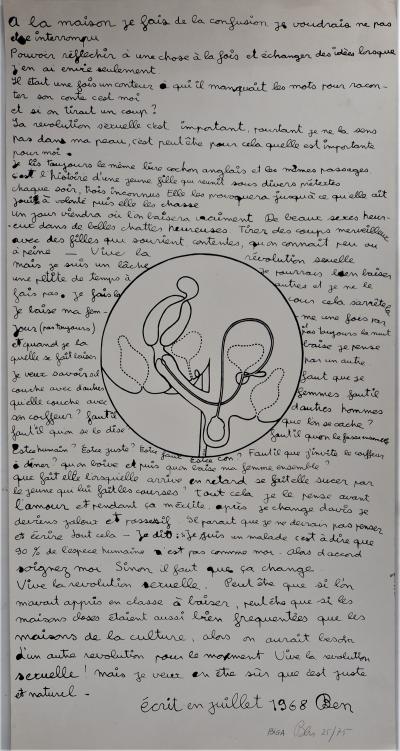 A la maison je fais de la confusion je voudrais ne pas
être interrompu
Pouvoir réfléchir à une chose à la fois et échanger des idées lorsque
j'en ai envie seulement.
Il était une fois un conteur à qui il manquait les mots pour racon-
ter son conte c'est moi
et si on tirait un coup?
La revolution sexuelle c'est important, pourtant je ne la sens
pas dans ma peau, c'est peut être pour cela quelle est importante
pour moi.
Je lis toujours le même livre cochon anglais et les mêmes passages.
C'est l'histoire d'une jeune fille qui reunit sous divers prétextes
chaque soir, trois inconnus Elle les provoquera jusqu'à ce qu'elle ait
joui à volonté puis elle les chasse
Un jour viendra où l'on baisera vraiment. De beaux sexes heur-
eux dans de belles chattes heureuses. Tirer des coups merveilleux
avec des filles qui sourient contentes, qu'on connait peu ou
à peine — Vive la révolution sexuelle
mais je suis un lâche je pourrais bien baiser
une petite de temps à autres et je ne le
fais pas. je fais la cela
Je baise ma fem- -me une fois par
jour (pas toujours) pas toujours la nuit
et quand je la baise je pense
quelle se fait baiser par un autre.
Je veux savoir si faut que se
couche avec d'autres femmes faut il
qu'elle couche avec d'autres hommes
son coiffeur? faut il que l'on se cache?
faut il qu'on se le dise faut il qu'on le fasse
Est ce humain? Est ce juste? Est ce con? Faut il que j'invite le coiffeur
à diner? qu'on boive et puis qu'on baise ma femme ensemble?
que fait elle lorsquelle arrive en retard se fait elle sucer par
le jeune qui lui fait les courses? tout cela je le pense avant
l'amour et pendant ça m'excite. après je change d'avis je
deviens jaloux et possessif Il parait que je ne devrais pas penser
et écrire tout cela — Je dit: Je suis un malade c'est à dire que
90 % de l'espece humaine n'est pas comme moi. alors d'accord
soignez moi Sinon il faut que ça change
Vive la revolution sexuelle. Peut être que si l'on
m'avait appris en classe à baiser, peut être que si les
maisons closes étaient aussi bien frequentées que les
maisons de la culture, alors on aurait besoin
d'un autre revolution pour le moment Vive la revolution
sexuelle! mais je veux en être sûr que c'est juste
et naturel -
écrit en juillet 1968 Ben
Ben 25/75